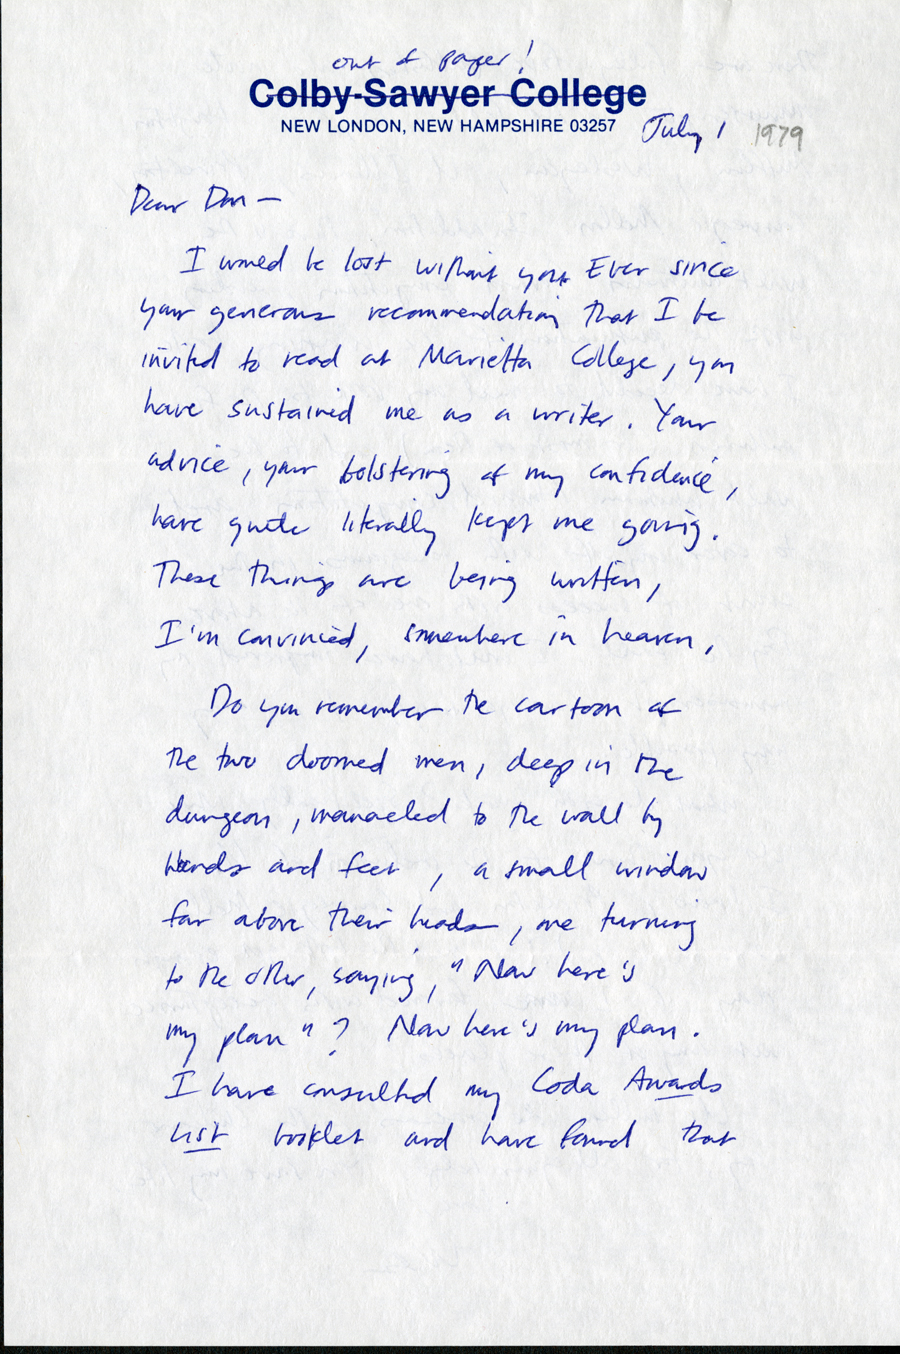 out of paper!
Colby-Sawyer College
NEW LONDON, NEW HAMPSHIRE 03257
July 1 1979
Dear Don —
I would be lost without you. Ever since
your generous recommendation that I be
invited to read at Marietta College, you
have sustained me as a writer. Your
advice, your bolstering of my confidence,
have quite literally kept me going.
These things are being written,
I'm convinced, somewhere in heaven.
Do you remember the cartoon of
the two doomed men, deep in the
dungeon, manacled to the wall by
hands and feet, a small window
far above their heads, one turning
to the other, saying, "Now here's
my plan"? Now here's my plan.
I have consulted my Coda Awards
List booklet and have found that